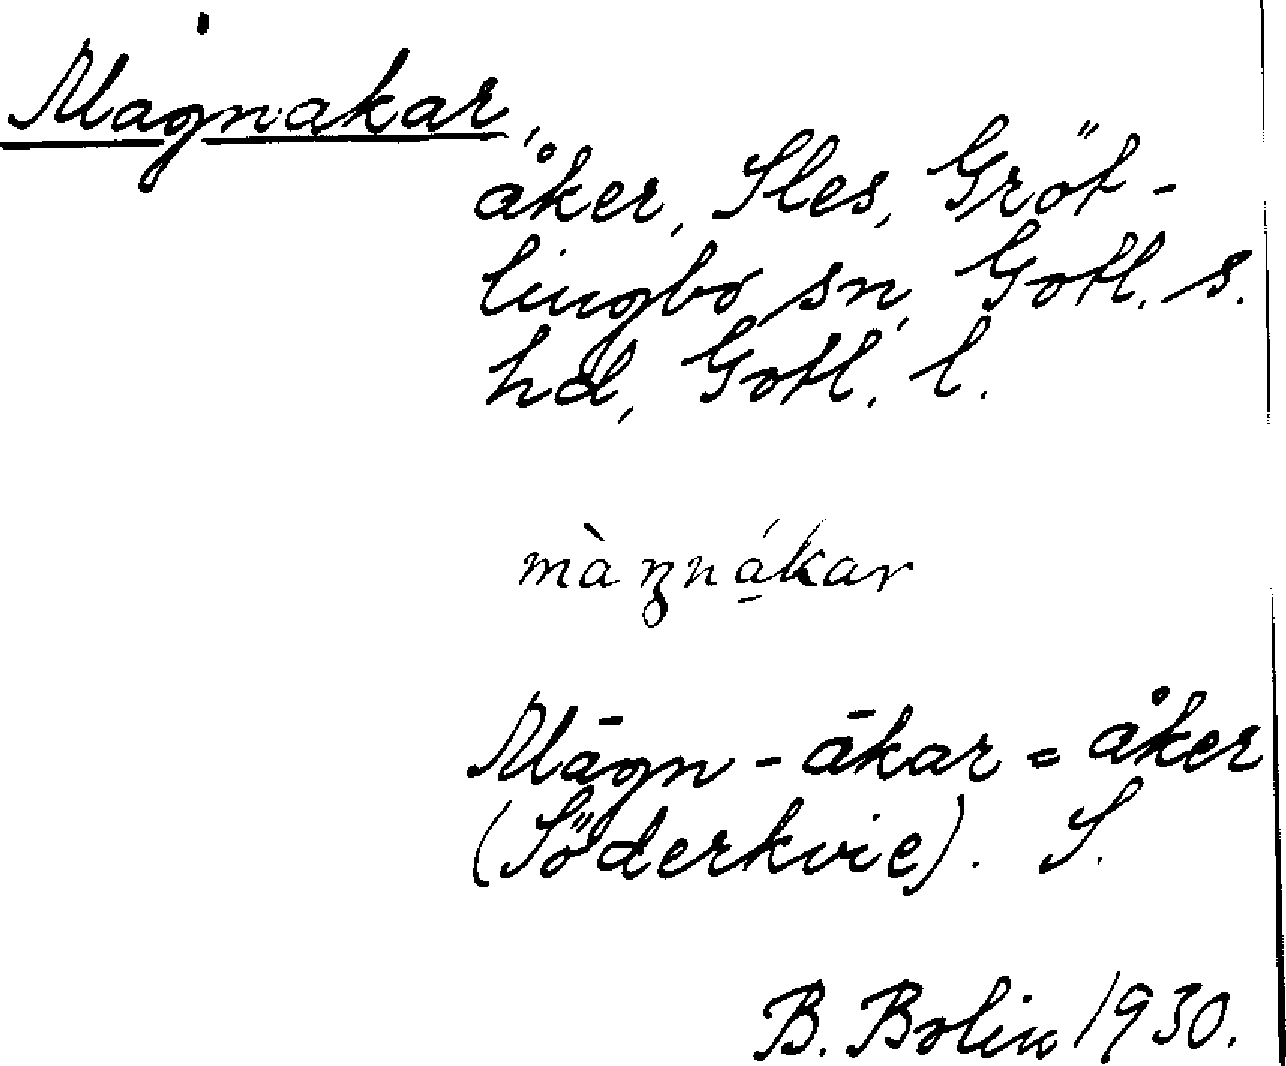 Magnakar,
åker, Sles, Gröt-
lingbo sn, Gotl. s.
hd, Gotl. l.
màgnákar
Māgn-ākar = åker
(Söderkvie). S.
B. Bolin 1930.